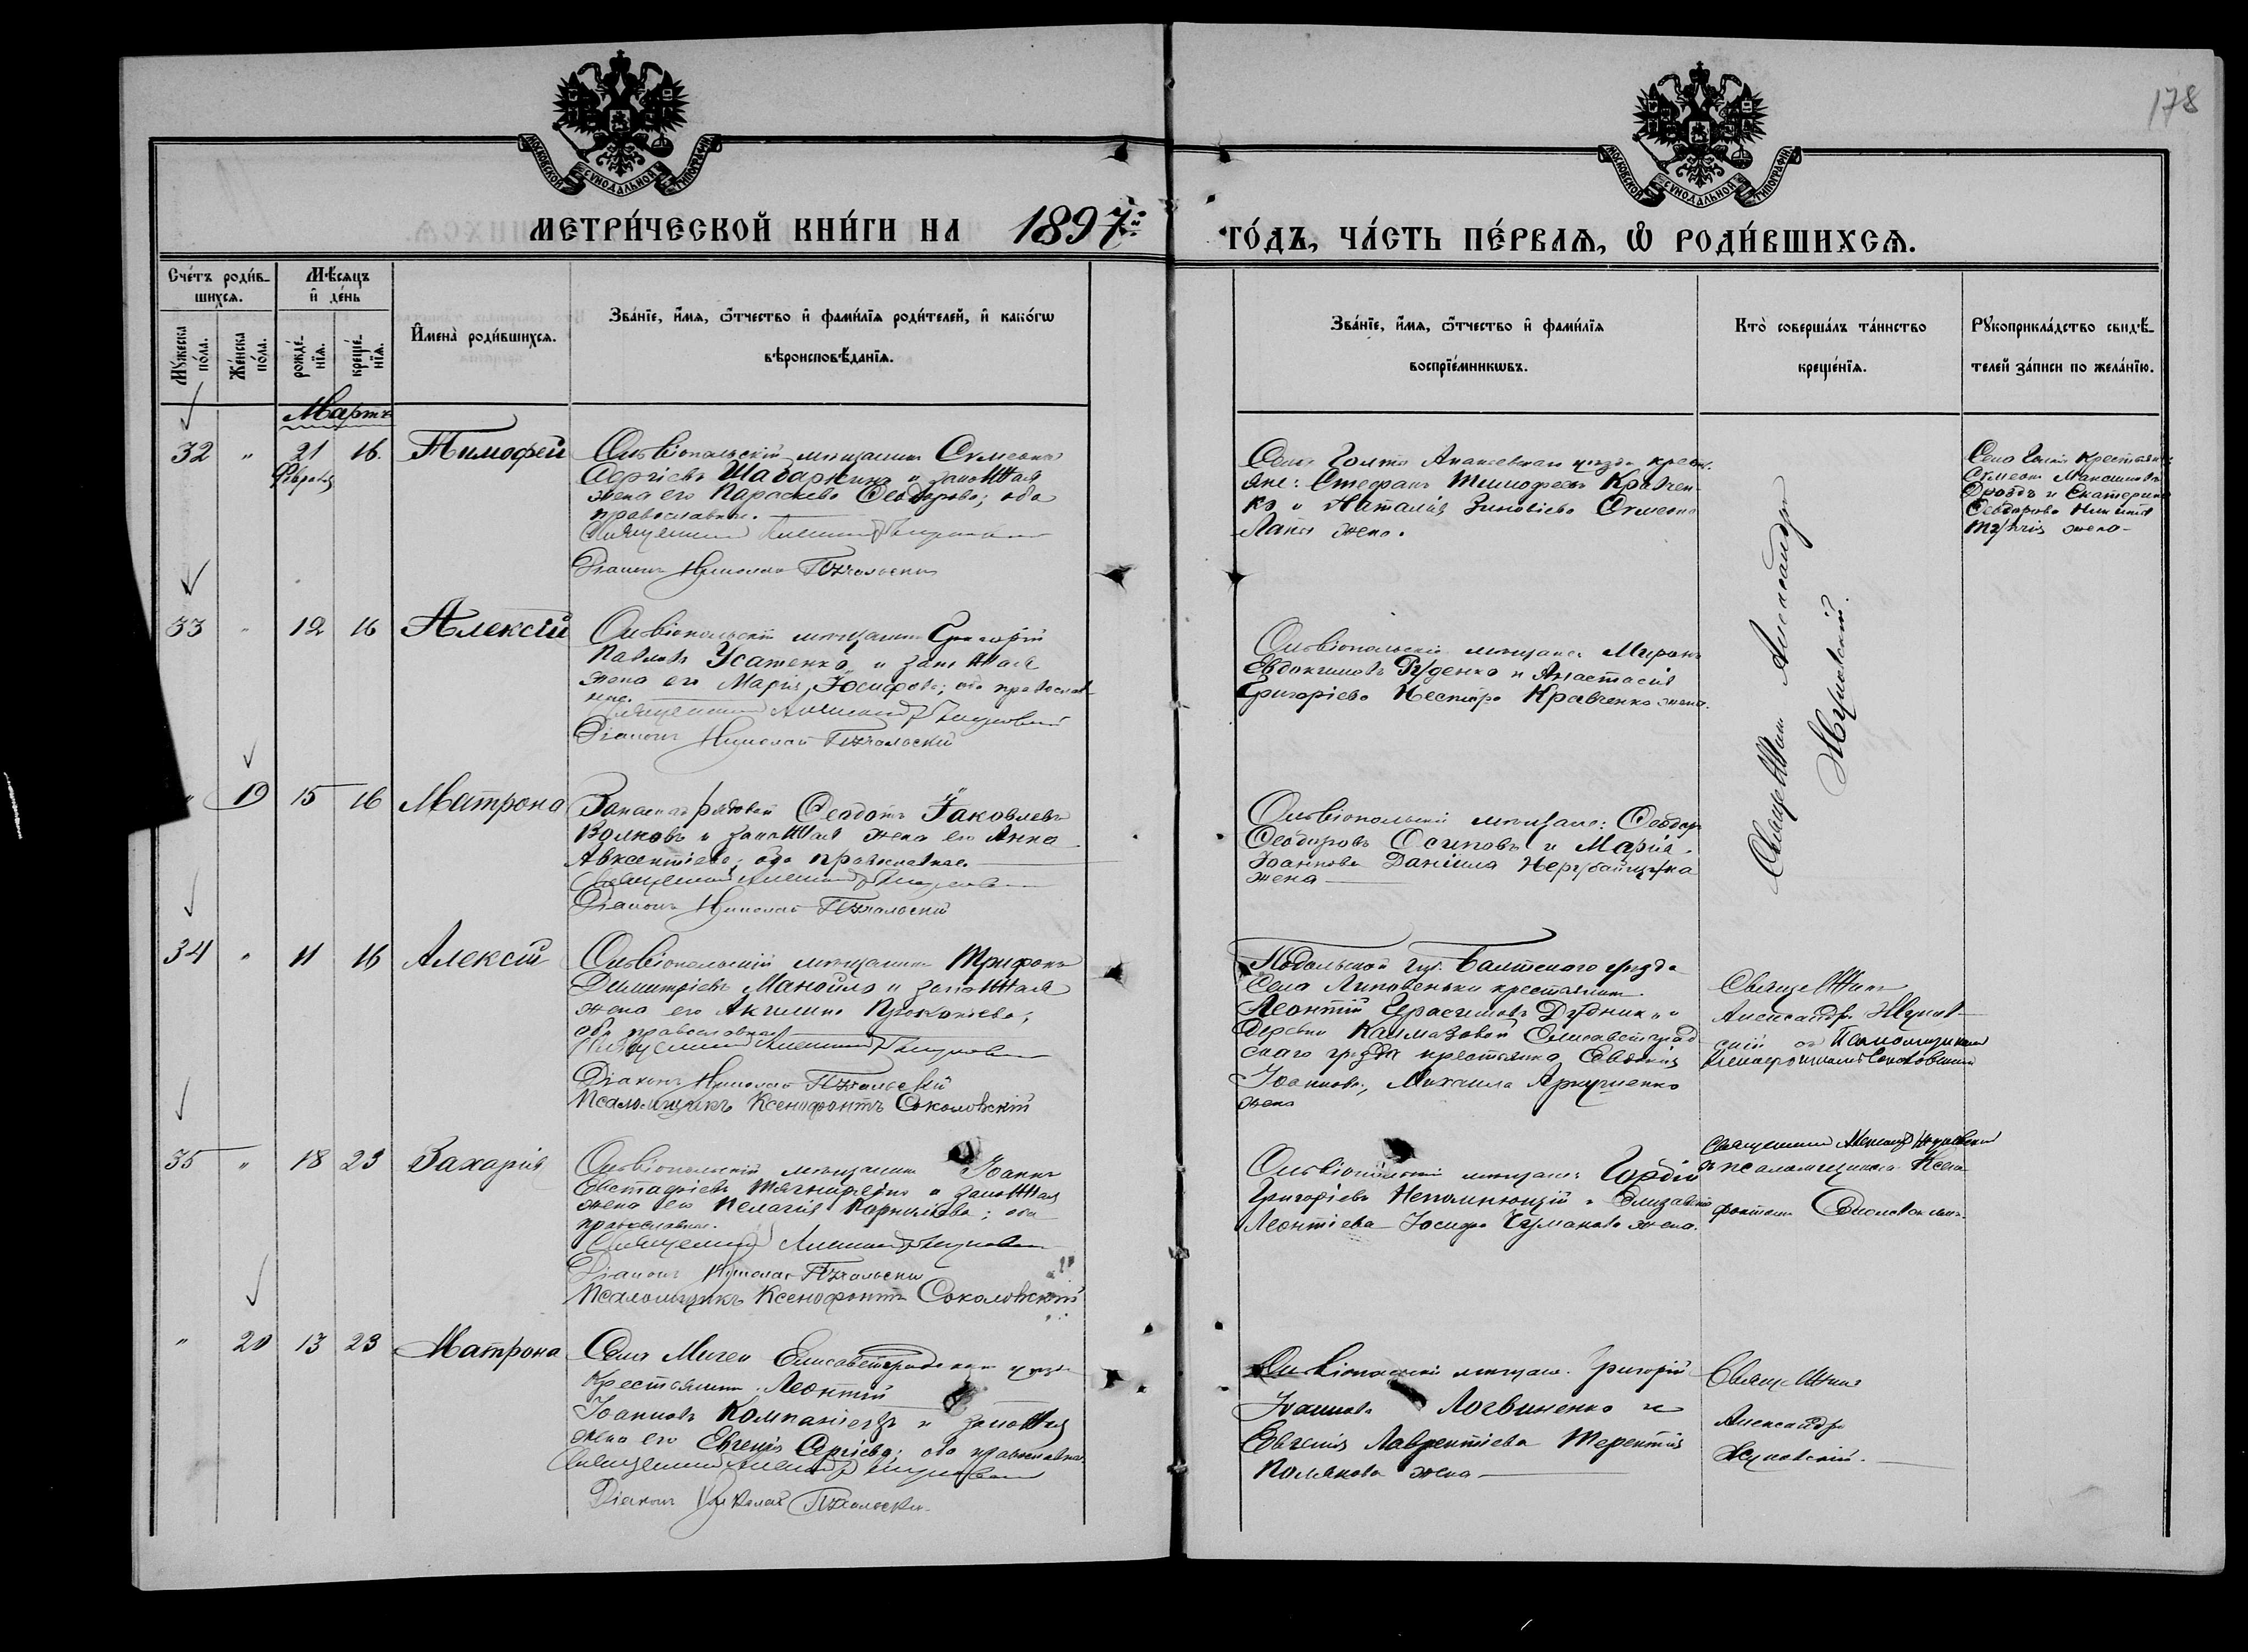 178
МОСКОВСКОЙ СУНОДАЛЬНОЙ ТИПОГРАФІИ
МОСКОВСКОЙ СУНОДАЛЬНОЙ ТИПОГРАФІИ
МЕТРИ́ЧЕСКОЙ КНИ́ГИ НА 1897й
ГО́ДЪ, ЧА́СТЬ ПЕ́РВАѦ, Ѽ РОДИ́ВШИХСѦ.
Сче́тъ роди́в-
шихсѧ.
Мѣ́сѧцъ
и҆ де́нь
Мꙋ́жеска
по́ла.
Же́нска
по́ла.
рожде́-
нїѧ.
креще́-
нїѧ.
И҆мена̀ роди́вшихсѧ.
Зва́нїе, и҆́мѧ, ѻ҆́тчество и҆ фами́лїѧ роди́телей, и҆ како́гѡ
вѣроисповѣ́данїѧ.
Зва́нїе, и҆́мѧ, ѻ҆́тчество и҆ фами́лїѧ
воспрїе́мникѡвъ.
Кто̀ соверша́лъ та́инство
креще́нїѧ.
Рꙋкоприкла́дство свидѣ́-
телей за́писи по жела́нїю.
Мартъ
32 " 21 16. Тимофей
Февраля
Ольвіопольскій мѣщанинъ Сѵмеонъ
Сергіевъ Шабаркинъ и законная
жена его Параскева Ѳеодорова; оба
православные.
Священникъ Александръ Жуковскій
Діаконъ Николай Пхальскій
Села Голты Ананьевскаго уѣзда крест.
яне: Стефанъ Тимофеевъ Кравчен-
ко и Наталія Зиновіева Сѵмеона
жена.
Села Голты крестьяне
Сѵмеонъ
Дроздъ и Екатерина
Ѳеодорова
жена
Священникъ Александръ
Жуковскій.
33 " 12 16 Алексій
Ольвіопольскій мѣщанинъ Григорій
Павловъ Усатенко и законная
жена его Марія Іосифова; оба православ-
ные.
Священникъ Александръ Жуковскій
Діаконъ Николай Пхальскій
Ольвіопольскіе мѣщане Миронъ
Евдокимовъ Руденко и Анастасія
Григоріева Нестора Кравченко жена.
" 19 15 16 Матрона
Запасной рядовой Ѳеодотъ Іаковлевъ
Волковъ и законная жена его Анна
Авксентіева; оба православные.
Священникъ Александръ Жуковскій
Діаконъ Николай Пхальскій
Ольвіопольскіе мѣщане: Ѳеодоръ
Ѳеодоровъ Осиповъ и Марія
Іоаннова Даніила
жена
34 " 11 16 Алексій
Ольвіопольскій мѣщанинъ Трифонъ
Димитріевъ Манойло и законная
жена его Акилина Прокопіева;
оба православные
Священникъ Александръ Жуковскій
Діаконъ Николай Пхальскій
Псаломщикъ Ксенофонтъ Соколовскій
Подольской губ. Балтскаго уѣзда
села Липовеньки крестьянинъ
Леонтій Герасимовъ Дудник и
деревни Елисаветград
скаго уѣзда крестьянка Евдокія
Іоаннова, Михаила
жена
Священникъ
Александръ Жуков-
скій съ Псаломщикомъ
Ксенофонтомъ Соколовскимъ
35 " 18 23 Захарія
Ольвіопольскій мѣщанинъ Іоаннъ
Евстафіевъ и законная
жена его Пелагія Корнилова; оба
православные.
Священникъ Александръ Жуковскій
Діаконъ Николай Пхальскій
Псаломщикъ Ксенофонтъ Соколовскій
Ольвіопольскіе мѣщане: Гордій
Григоріевъ Непомнющій и Елизавета
Леонтіева Іосифа Чумакова жена.
Священникъ Александръ Жуковскій
съ псаломщикомъ Ксено-
фонтомъ Соколовскимъ.
" 20 13 23 Матрона
Села Мигеи Елисаветградскаго уѣзда
крестьянинъ Леонтій
Іоанновъ Компаніецъ и законная
жена его Евгенія Сергіева; оба православные.
Священникъ Александръ Жуковскій
Діаконъ Николай Пхальскій
Ольвіопольскіе мѣщане. Григорій
Іоанновъ Логвиненко и
Евгенія Лаврентіева Терентія
Полякова жена
Священникъ
Александръ
Жуковскій.